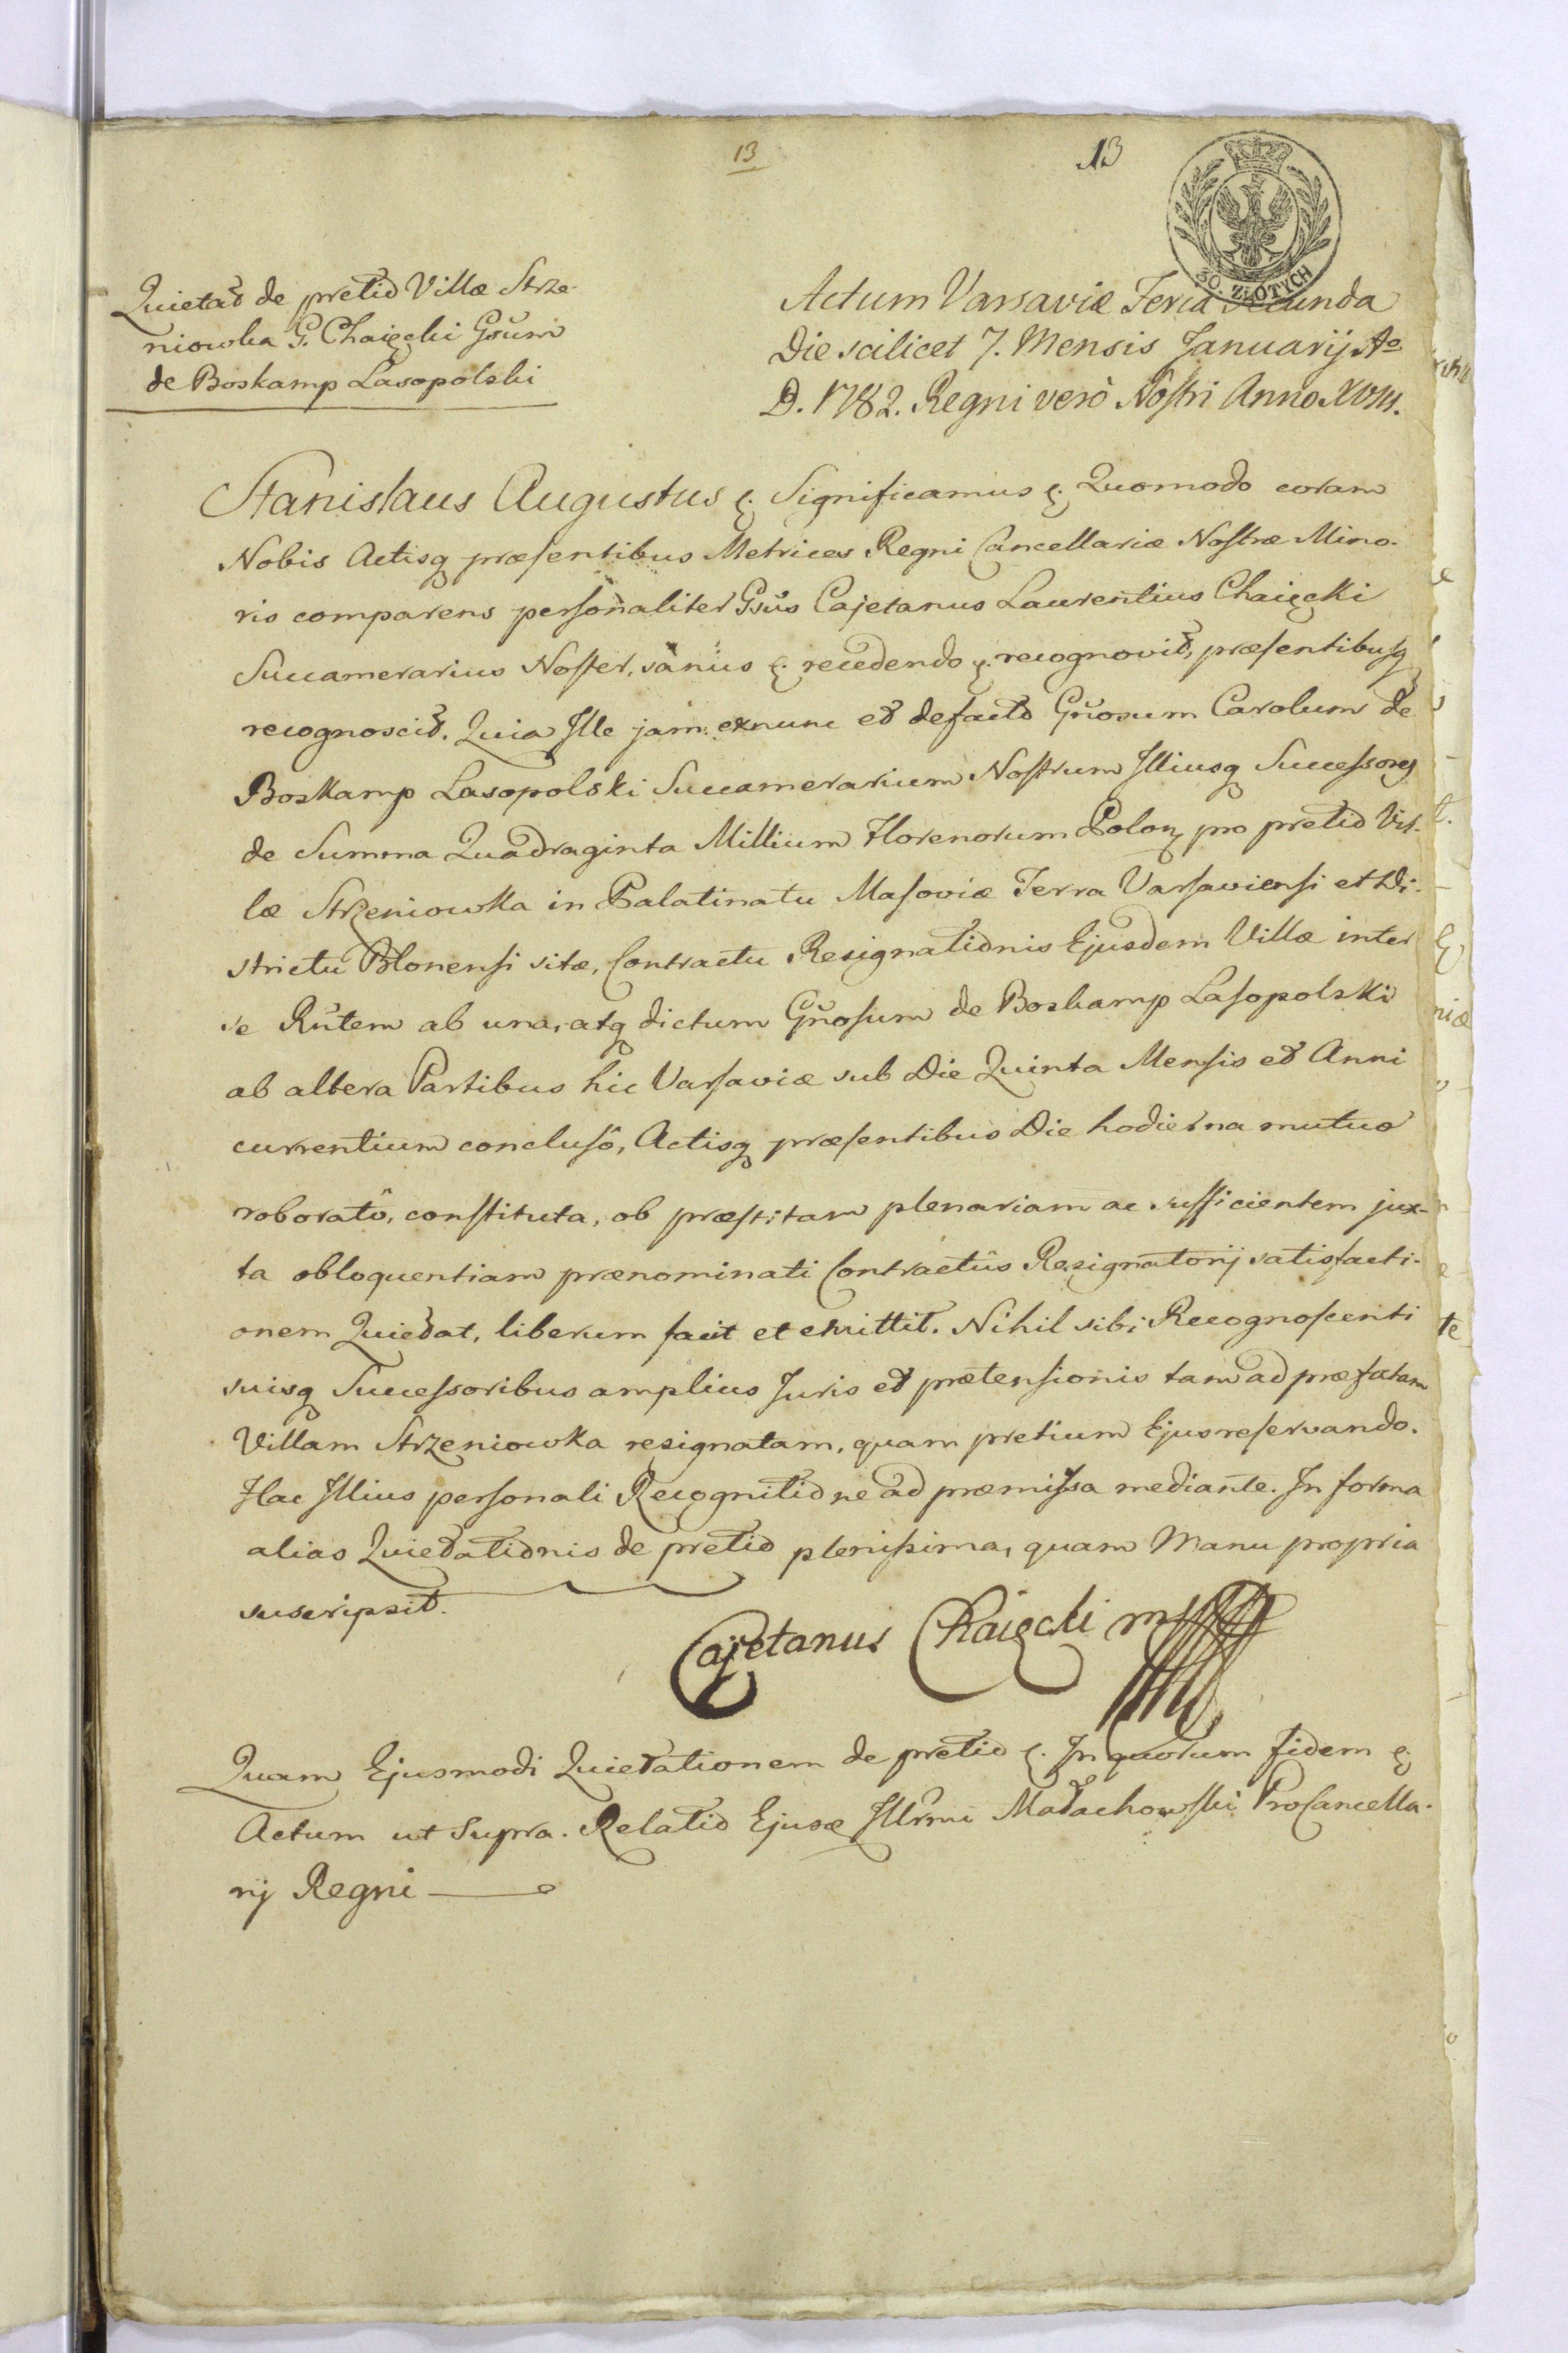 13
13
30. ZŁOTYCH
Quietat̃ de pretio Villæ Strze-
niowka G. Chaięcki Gsũm
de Boskamp Lasopolski
Actum Varsaviæ Feria Secunda
Die scilicet 7. Mensis Januarij Ao
D. 1782. Regni verò Nostri Anno XVIII.
Stanislaus Augustus &. Significamus &. Quomodo coram
Nobis Actisq præsentibus Metrices Regni Cancellariæ Nostræ Mino-
ris comparens personaliter Gsũs Cajetanus Laurentius Chaięcki
Succamerarius Noster, sanus &. recedendo &. recognovit, præsentibusq
recognoscit. Quia Ille jam exnunc et defacto Gnõsum Carolum de
Boskamp Lasopolski Succamerarium Nostrum Illiusq Successores
de Summa Quadraginta Millium Florenorum Polon, pro pretio Vil-
læ Strzeniowka in Palatinatu Masoviæ Terra Varsaviensi et Di-
strictu Blonensi sitæ, Contractu Resignationis Ejusdem Villæ inter
se Rñtem ab una, atq dictum Gnõsum de Boskamp Lasopolski
ab altera Partibus hic Varsaviæ sub Die Quinta Mensis et Anni
currentium conclusô, Actisq præsentibus Die hodierna mutuo
roboratô, constituta, ob præstitam plenariam ac sufficientem jux-
ta obloquentiam prænominati Contractûs Resignatorij satisfacti-
onem Quietat, liberum facit et emittit. Nihil sibi Recognoscenti
suisq Successoribus amplius Juris et prætensionis tam ad præfatam
Villam Strzeniowka resignatam, quam pretium Ejus reservando.
Hac Illius personali Recognitione ad præmissa mediante. In forma
alias Quietationis de pretio plenissima, quam Manu propria
suscripsit.
Cajetanus Chaięcki mp
Quam Ejusmodi Quietationem de pretio &. In quorum fidem &.
Actum ut Supra. Relatio Ejusdem Illr̃mi Małachowski ProCancella-
rij Regni